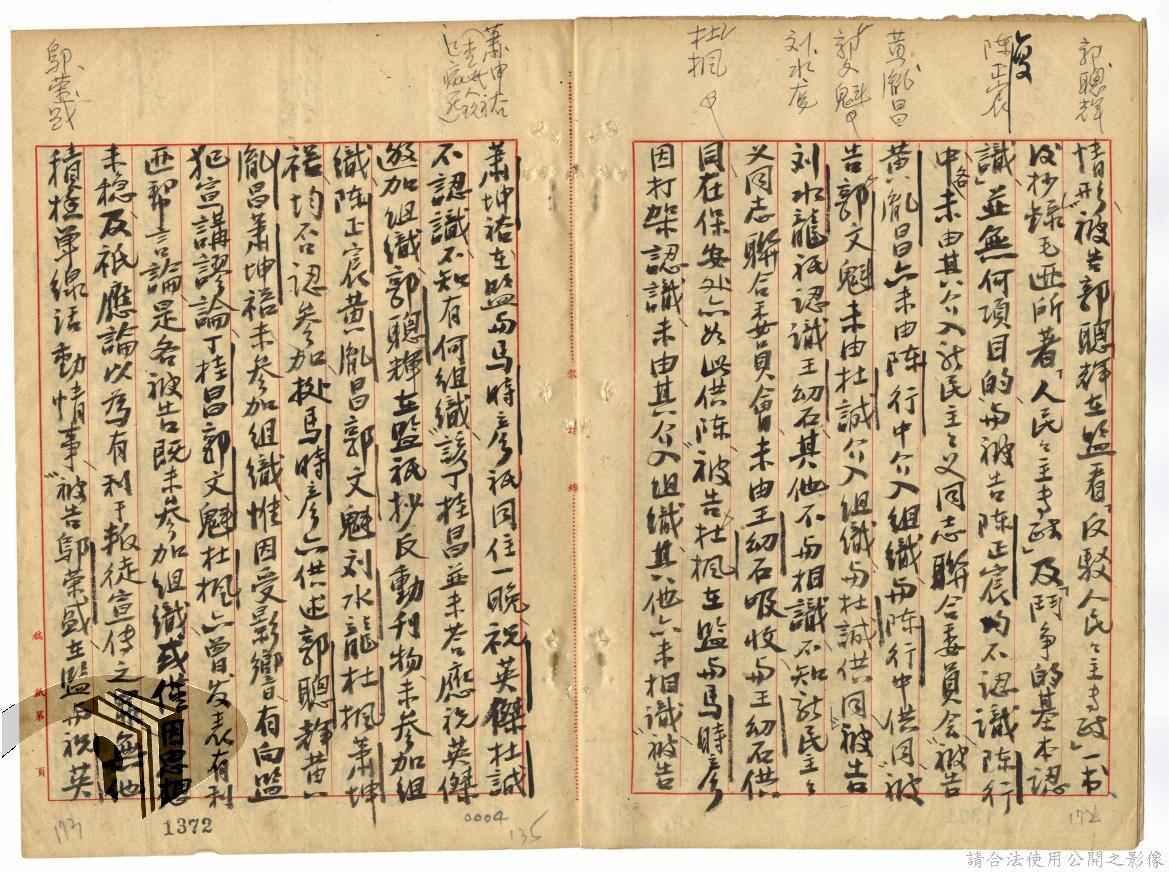 郭聰輝
陳正宸
黃胤昌
郭文魁
刘水龙
杜楓
情形」被告郭聰輝在監看「反駁人民民主专政」一书
及抄錄毛匪所著「人民民主专政」及「鬥争的基本認
識」並無何項目的与被告陈正宸均不認識陈行
中各未由其介入新民主主义同志聯合委員会」被告
黄胤昌亦未由陈行中介入組織与陈行中供同」被
告郭文魁未由杜誠介入組織与杜誠供同」被告
刘水龍祇認識王幼石其他不与相識不知新民主主
义同志聯合委員會未由王幼石吸收与王幼石供
同在保安处亦如此供陈」被告杜楓在監与馬時彥
因打架認識未由其介入組織其他亦未相識」被告
172
蕭坤裕
已病死
鄔榮盛
蕭坤裕在監与馬時彥祇同住一晚祝英傑杜誠
不認識不知有何組織」該丁桂昌並未答應祝英傑
參加組織郭聰輝在監祇抄反動刊物未參加組
織陈正宸黄胤昌郭文魁刘水龍杜楓蕭坤
裕均否認參加據馬時彥亦供述郭聰輝黄
胤昌蕭坤裕未參加組織惟因受影響有向監
犯宣講謬論丁桂昌郭文魁杜楓亦曾发表有利
匪幫言論是各被告既未參加組織或僅因思想
未稳及祇應論以為有利于叛徒宣传之 無他
積極单線活動情事」被告鄔榮盛在監与祝英
173
1372
0004
135
稿紙第 頁
請合法使用公開之影像